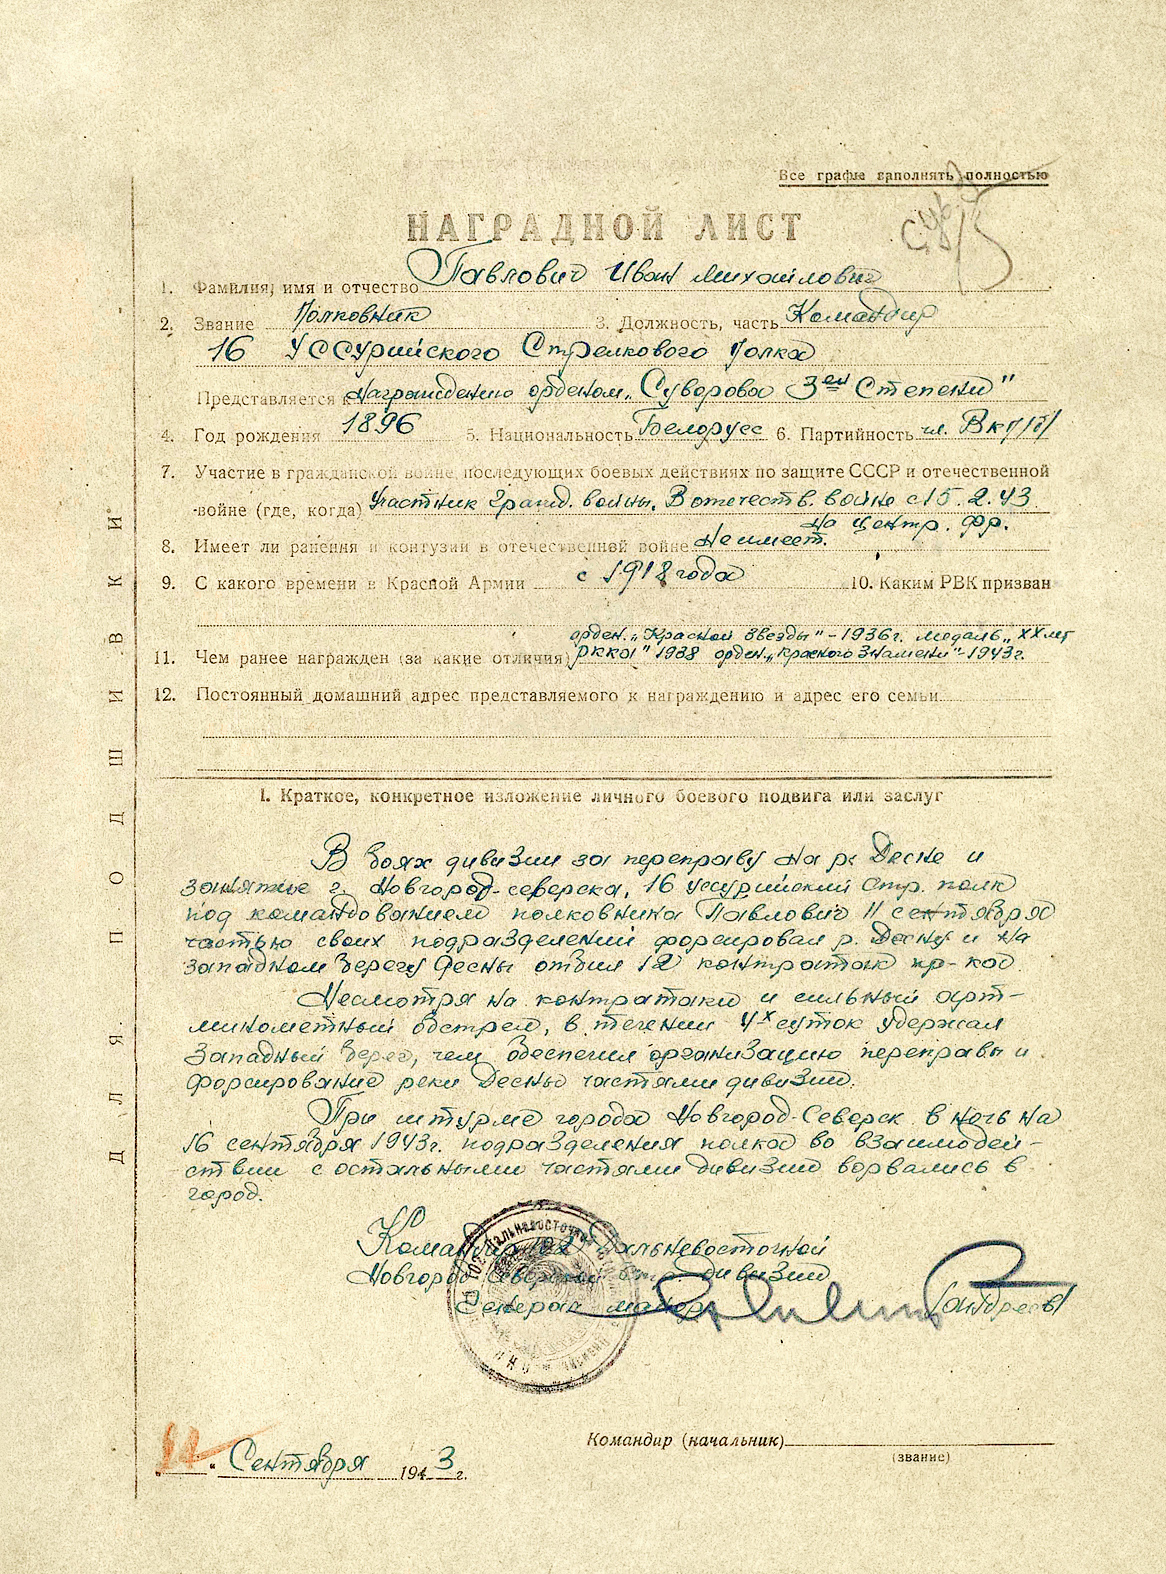 Все графы заполнять полностью
НАГРАДНОЙ ЛИСТ
1. Фамилия, имя и отчество Павлович Иван Михайлович
2. Звание Полковник 3. Должность, часть Командир
16 Уссурийского Стрелкового Полка
Представляется к Награждению орденом „Суворова 3ей Степени"
4. Год рождения 1896 5. Национальность Белорусс 6. Партийность чл. ВКП/б/
7. Участие в гражданской войне, последующих боевых действиях по защите СССР и отечественной
войне (где, когда) Участник гражд. войны. В отечеств. войне с 15.2.43
на Центр. Фр.
8. Имеет ли ранения и контузии в отечественной войне Не имеет.
9. С какого времени в Красной Армии с 1918 года 10. Каким РВК призван
орден. „Красной Звезды" - 1936г. медаль „XX лет
11. Чем ранее награжден (за какие отличия) РККА" 1938 орден. „Красного Знамени" - 1943г.
12. Постоянный домашний адрес представляемого к награждению и адрес его семьи
I. Краткое, конкретное изложение личного боевого подвига или заслуг
В боях дивизии за переправу на р. Десне и
занятие г. Новгород-северска, 16 уссурийский стр. полк
под командованием полковника Павлович 11 сентября
частью своих подразделений форсировал р. Десну и на
западном берегу Десны отбил 12 контратак пр-ка.
Несмотря на контратаки и сильный арт-
минометный обстрел, в течении 4х суток удержал
Западный берег, чем обеспечил организацию переправы и
форсирование реки Десны частями дивизии.
При штурме города Новгород-Северск в ночь на
16 сентября 1943г. подразделения полка во взаимодей-
ствии с остальными частями дивизии ворвались в
город.
Командир 102 Дальневосточной
Новгород Северской стр. дивизии
Генерал майор /Андреев/
Командир (начальник)
(звание)
„ " Сентября 1943 г.
ДЛЯ ПОДШИВКИ